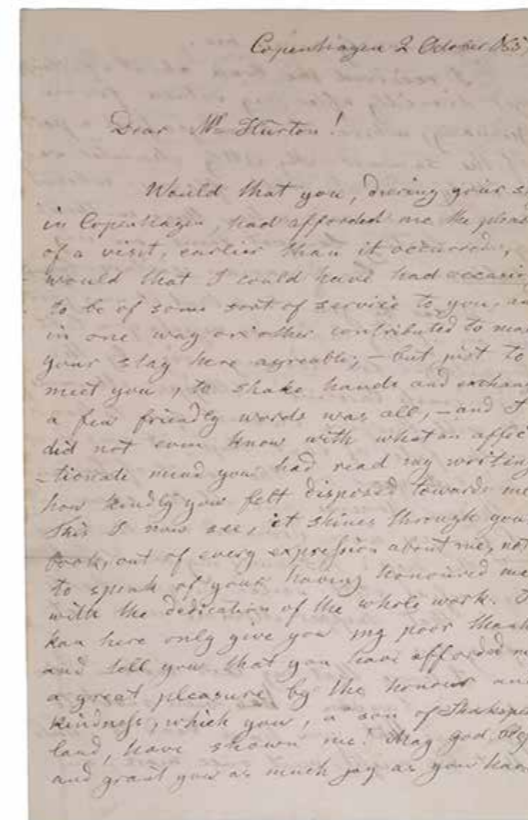 Copenhagen 2 October 185
Dear Mr Hurton!
Would that you, during your s
in Copenhagen, had afforded me the pleas
of a visit, earlier than it occurred,
would that I could have had occasio
to be of some sort of service to you, an
in one way or other contributed to mak
your stay here agreable; – but just to
meet you, to shake hands and exchan
a few friendly words was all, – and I
did not even know with what an affec
-tionate mind you had read my writing
how kindly you felt disposed towards me
This I now see, it shines through you
book, out of every expression about me, not
to speak of your having honoured me
with the dedication of the whole work. I
kan here only give you my poor thank
and tell you that you have afforded m
a great pleasure by the honour and
kindness, which you, a son of Shakspe
land, have shown me! May god bles
and grant you as much joy as you have